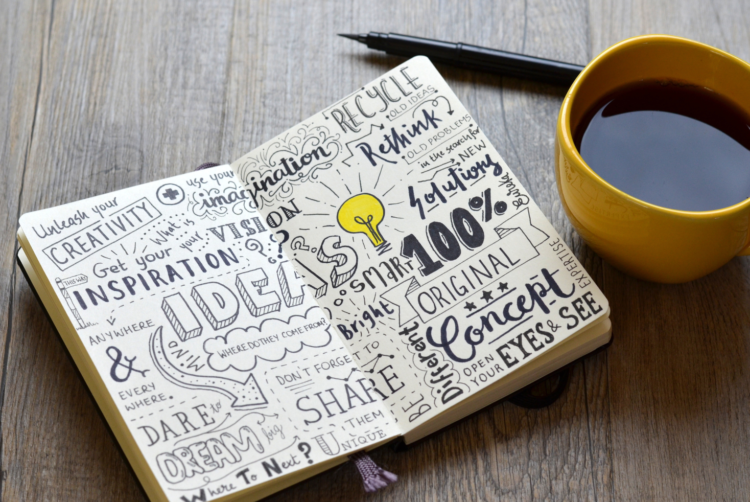 Unleash your
CREATIVITY
use your
imagination
What is
your
VISION
?
Get your
INSPIRATION
?
ANYWHERE
&
EVERY
WHERE.
IDEAS
MIND
WHERE DO THEY COME FROM?
DARE to
DREAM big
Where To Next?
DON'T FORGET TO
SHARE
THEM
UNIQUE
RECYCLE
OLD IDEAS
Rethink
OLD PROBLEMS
in the search for
NEW
Solutions
SMART
Bright
100%
ORIGINAL
Concept
EXPERTISE
BE
Different
OPEN
YOUR
EYES & SEE